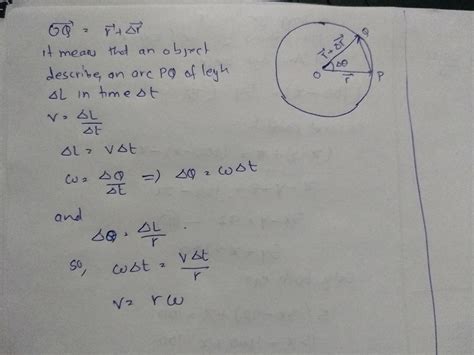 OQ⃗ = r⃗ + Δr⃗
it means that an object
describe, an arc PQ of legh
ΔL in time Δt
v = ΔL/Δt
ΔL = vΔt
ω = ΔQ/Δt => ΔQ = ωΔt
and
ΔQ = ΔL/r .
so, ωΔt = vΔt/r
v = rω
Q
r⃗+Δr⃗
Δθ
O
r⃗
P